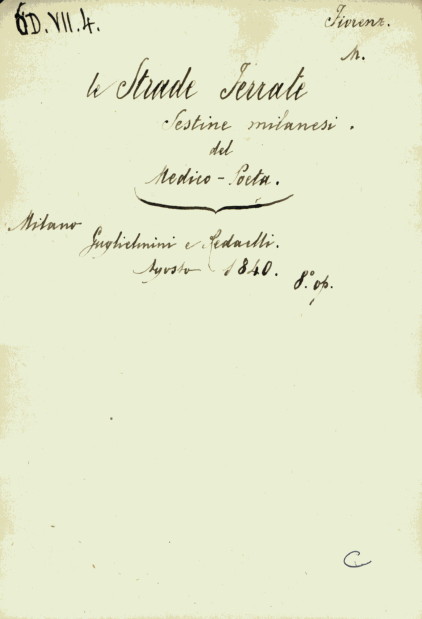 D. VII. 4.
Fiorenz.
M.
le Strade Ferrate
Sestine milanesi.
del
Medico-Poeta.
Milano
Guglielmini e Redaelli.
Agosto 1840.
8.° op.
C